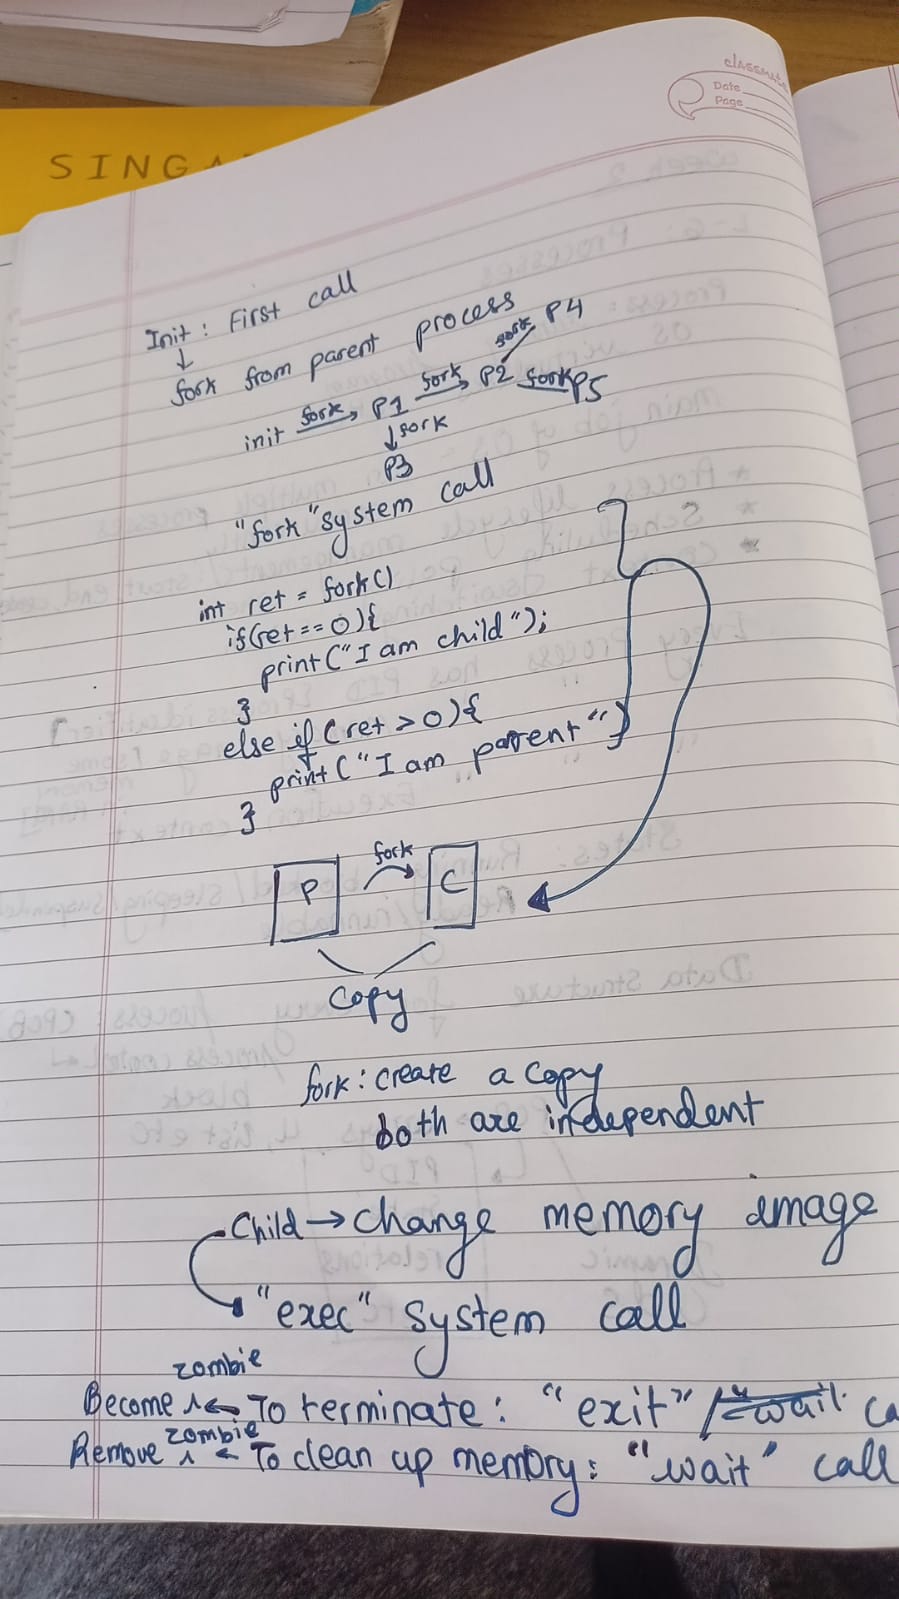 SINGA
classmate
Date
Page
Init: First call
↓
fork from parent process
init fork→ P1 fork→ P2 fork P4
fork P5
↓fork
P3
"fork" system call
int ret = fork()
if(ret == 0){
print("I am child");
}
else if (ret > 0){
print("I am parent")
}
P fork C
copy
fork: create a copy
both are independent
Child → change memory image
"exec" system call
zombie
Become ← To terminate: "exit" / "wait" ca
zombie
Remove ← To clean up memory: "wait" call